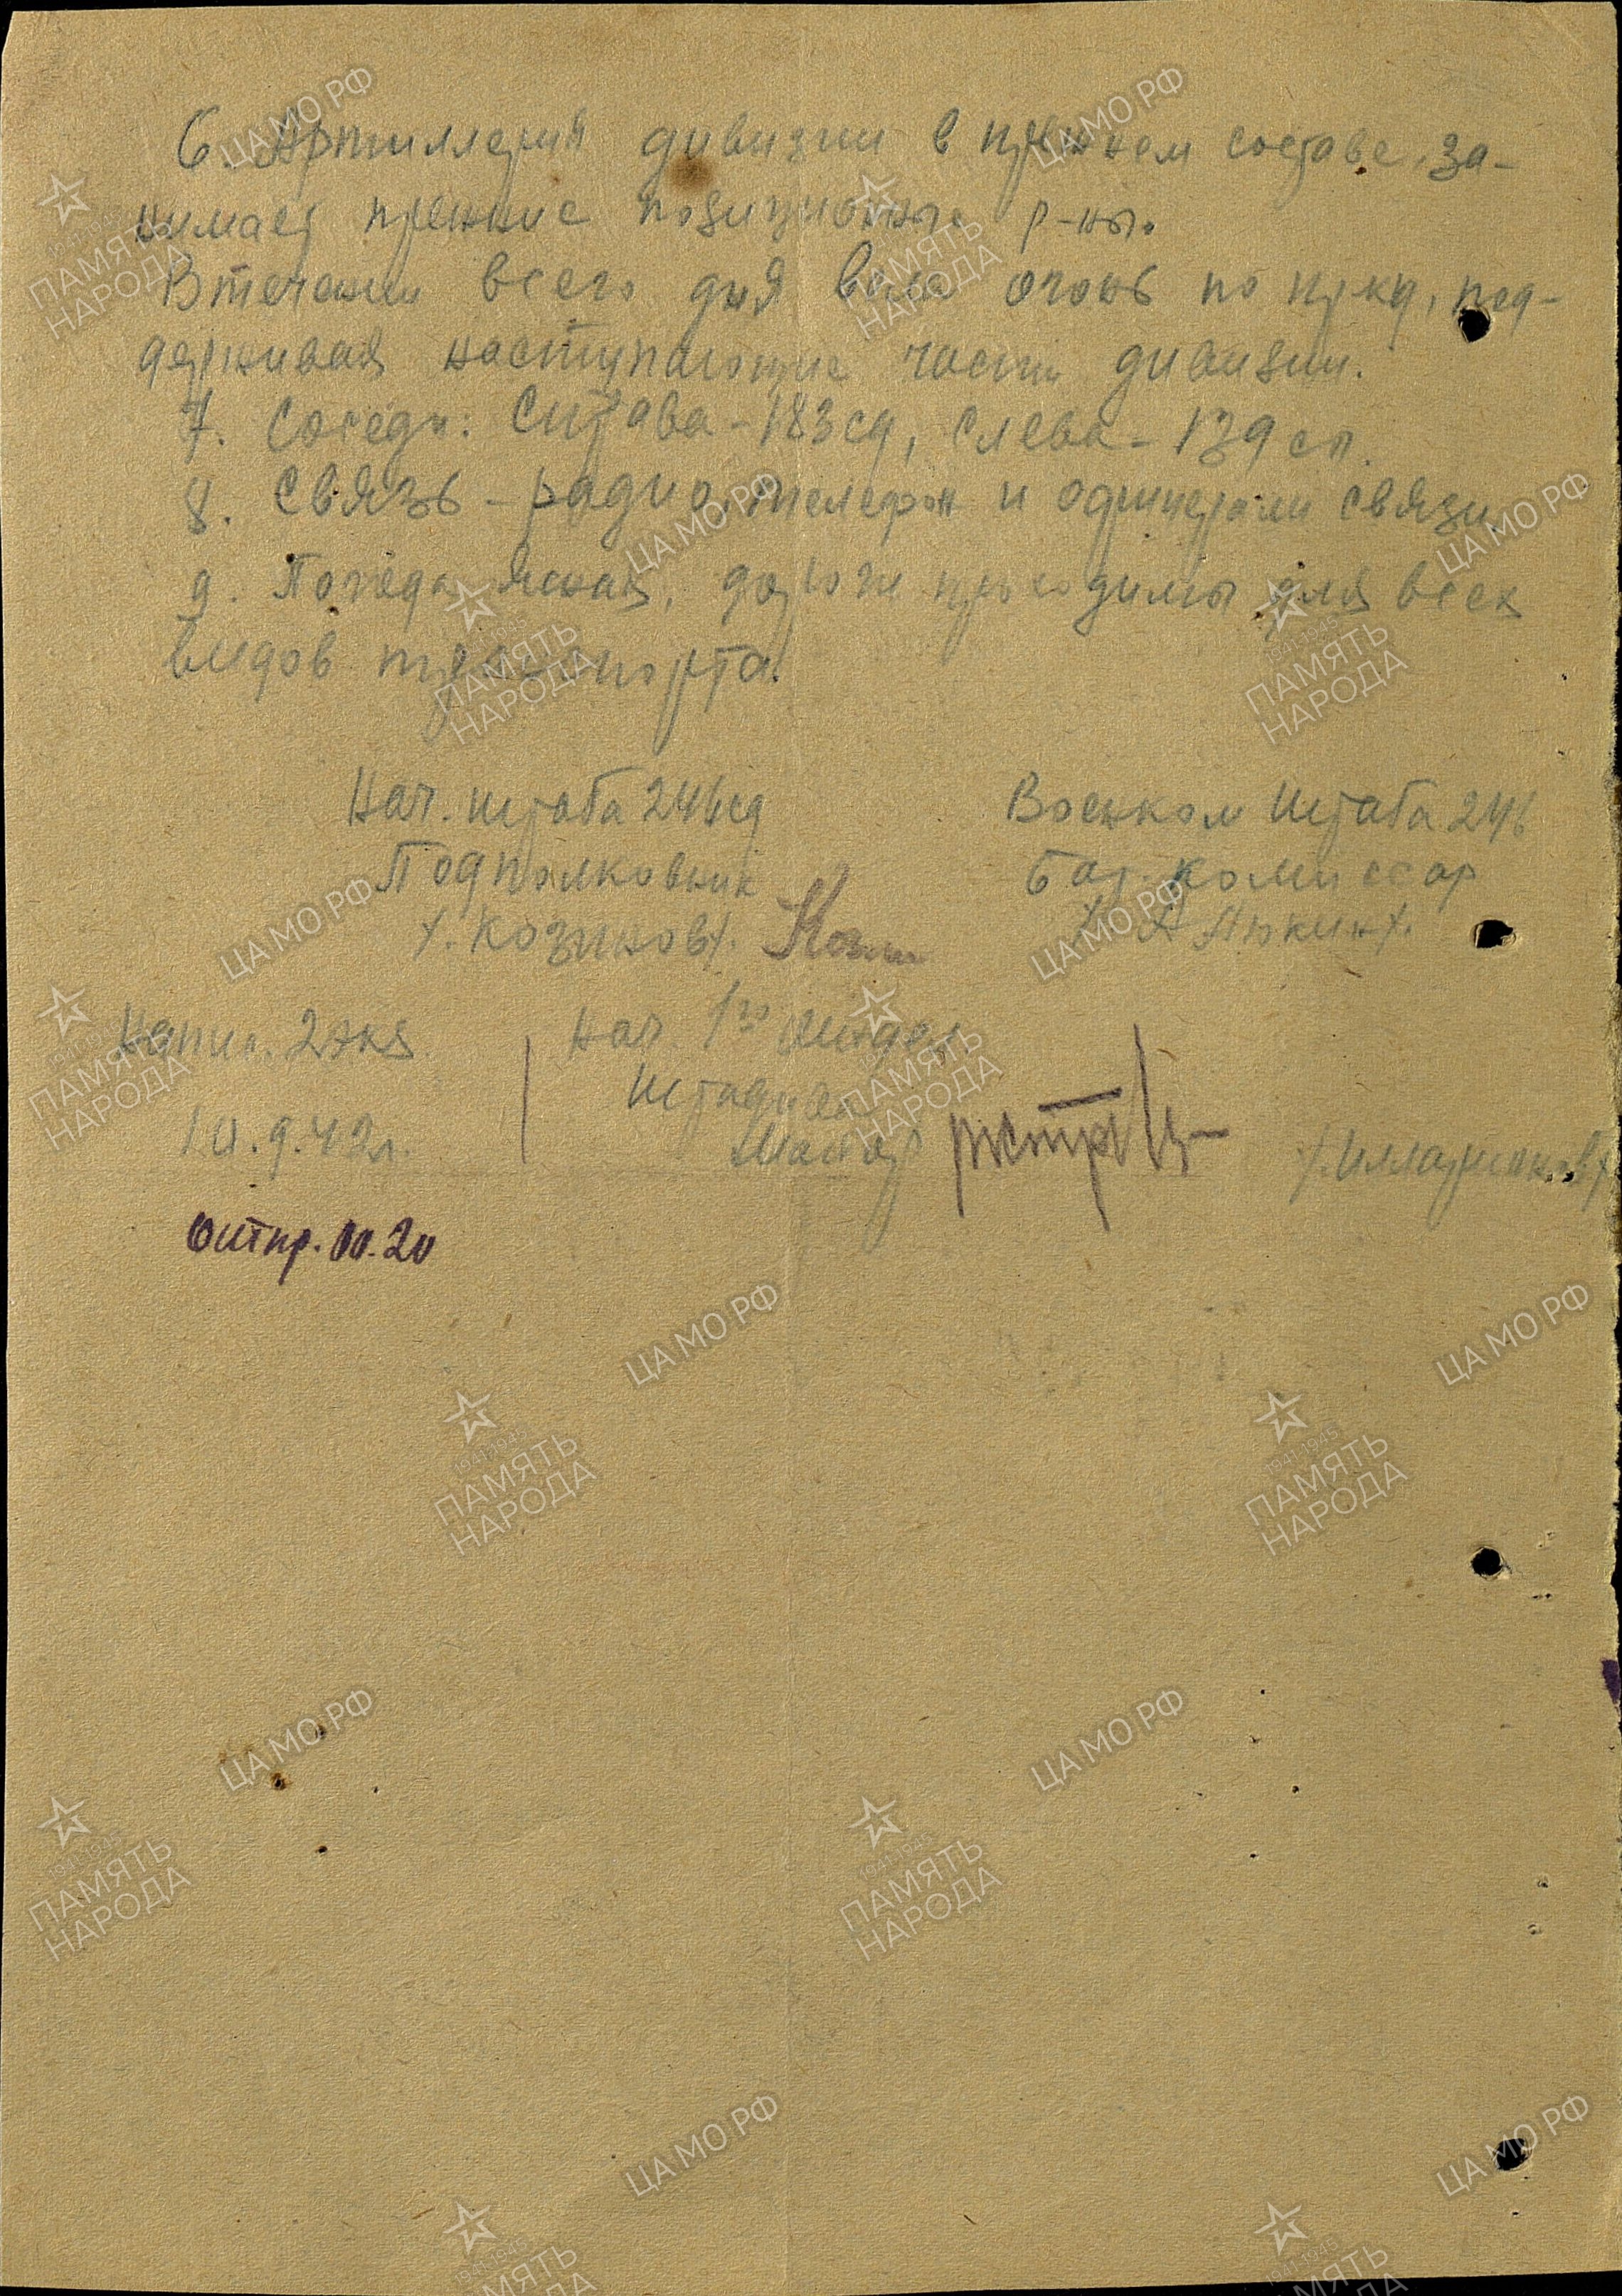 6. Артиллерия дивизии в прежнем составе, за-
нимает прежние позиционные р-ны.
В течении всего дня вела огонь по пр-ку, под-
держивая наступающие части дивизии.
7. Соседи: Справа - 183 сд, слева - 139 сп.
8. Связь - радио, телефон и офицерами связи.
9. Погода ясная, дороги проходимы для всех
видов транспорта.
Нач. штаба 246 сд Военком штаба 246
Подполковник Бат. комиссар
/Козинов/
Напис. 2 экз. Нач. 1го отдел.
штадива
10.9.42г. Майор /Илларионов/
Отпр. 00.20
ЦА МО РФ
1941-1945
ПАМЯТЬ
НАРОДА